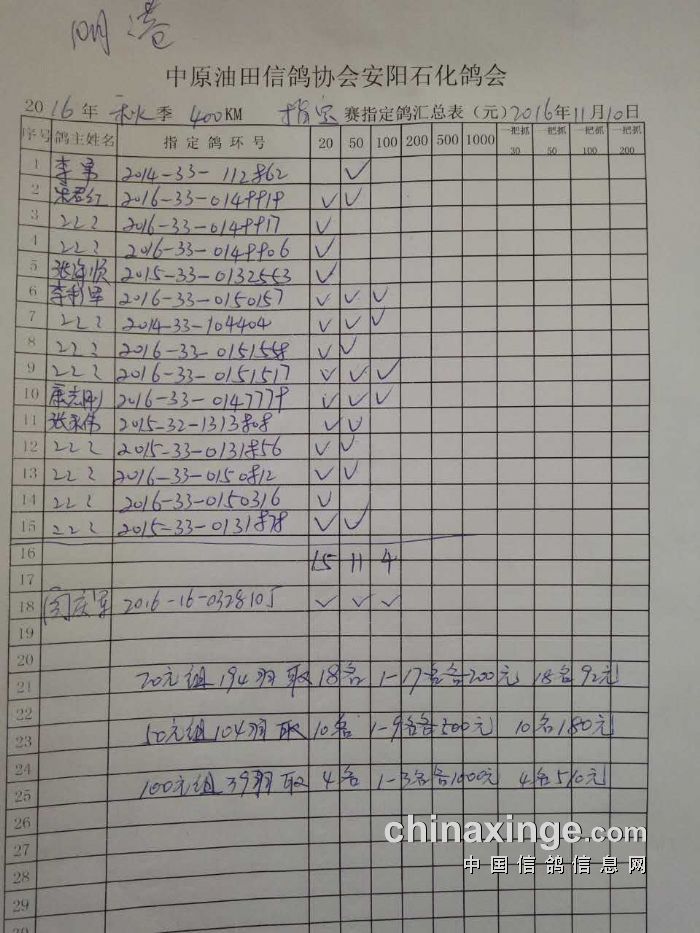 明港
中原油田信鸽协会安阳石化鸽会
2016年 秋 季 400KM 指定 赛指定鸽汇总表（元）2016年11月10日
序号 鸽主姓名 指定鸽环号 20 50 100 200 500 1000 一把抓30 一把抓50 一把抓100 一把抓200
1 李军 2014-33-112862 ✓
2 2016-33-0149918 ✓ ✓
3 〃 2016-33-0149917 ✓
4 〃 2016-33-0149906 ✓
5 张海顺 2015-33-0132553 ✓
6 李利军 2016-33-0150157 ✓ ✓ ✓
7 〃 2014-33-104404 ✓ ✓ ✓
8 〃 2016-33-0151558 ✓ ✓
9 〃 2016-33-0151517 ✓ ✓ ✓
10 康志刚 2016-33-0147779 ✓ ✓ ✓
11 张永伟 2015-32-1313808 ✓ ✓
12 〃 2015-33-0131856 ✓ ✓
13 〃 2016-33-0150812 ✓ ✓
14 〃 2016-33-0150316 ✓
15 〃 2015-33-0131878 ✓ ✓
16 15 11 4
17
18 闫庆军 2016-16-0328105 ✓ ✓ ✓
19
20
21 20元组194羽取18名 1-17名各200元 18名92元
22
23 50元组104羽取10名 1-9名各500元 10名180元
24
25 100元组39羽取4名 1-3名各1000元 4名510元
26
27
28
29
chinaxinge.com
中国信鸽信息网